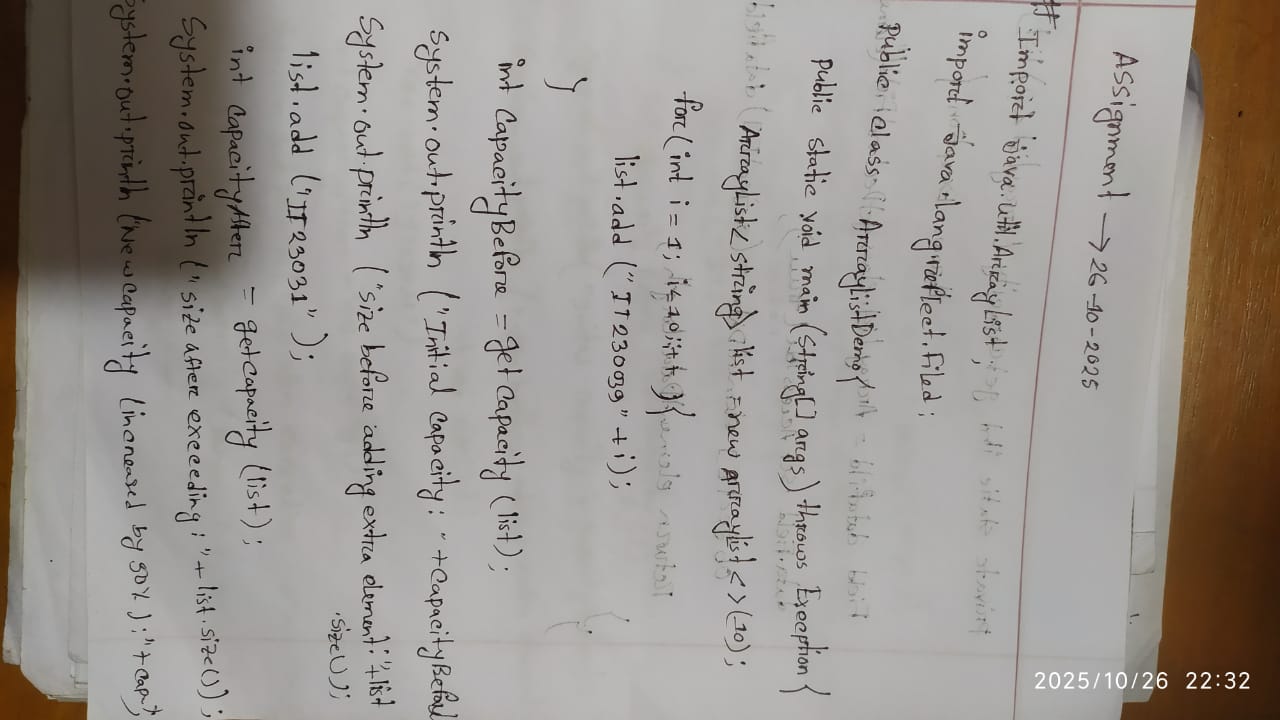 Assignment → 26-10-2025
# Import java.util.ArrayList;
import java.lang.reflect.Filed;
Public class ArrayListDemo{
public static void main (String[] args) throws Exception {
ArrayList<string> list = new arraylist<>(10);
for(int i = 1; i≤10; i++){
list.add ("IT23039" + i);
}
int capacityBefore = getcapacity (list);
System.out.println ("Initial capacity: " + capacityBefore
System.out.println ("size before adding extra element: "+list
.size());
list.add ("IT23031");
int capacityAfter = getcapacity (list);
System.out.println ("size after exceeding: " + list.size());
System.out.println ("New capacity (increased by 50%):"+cap
2025/10/26 22:32